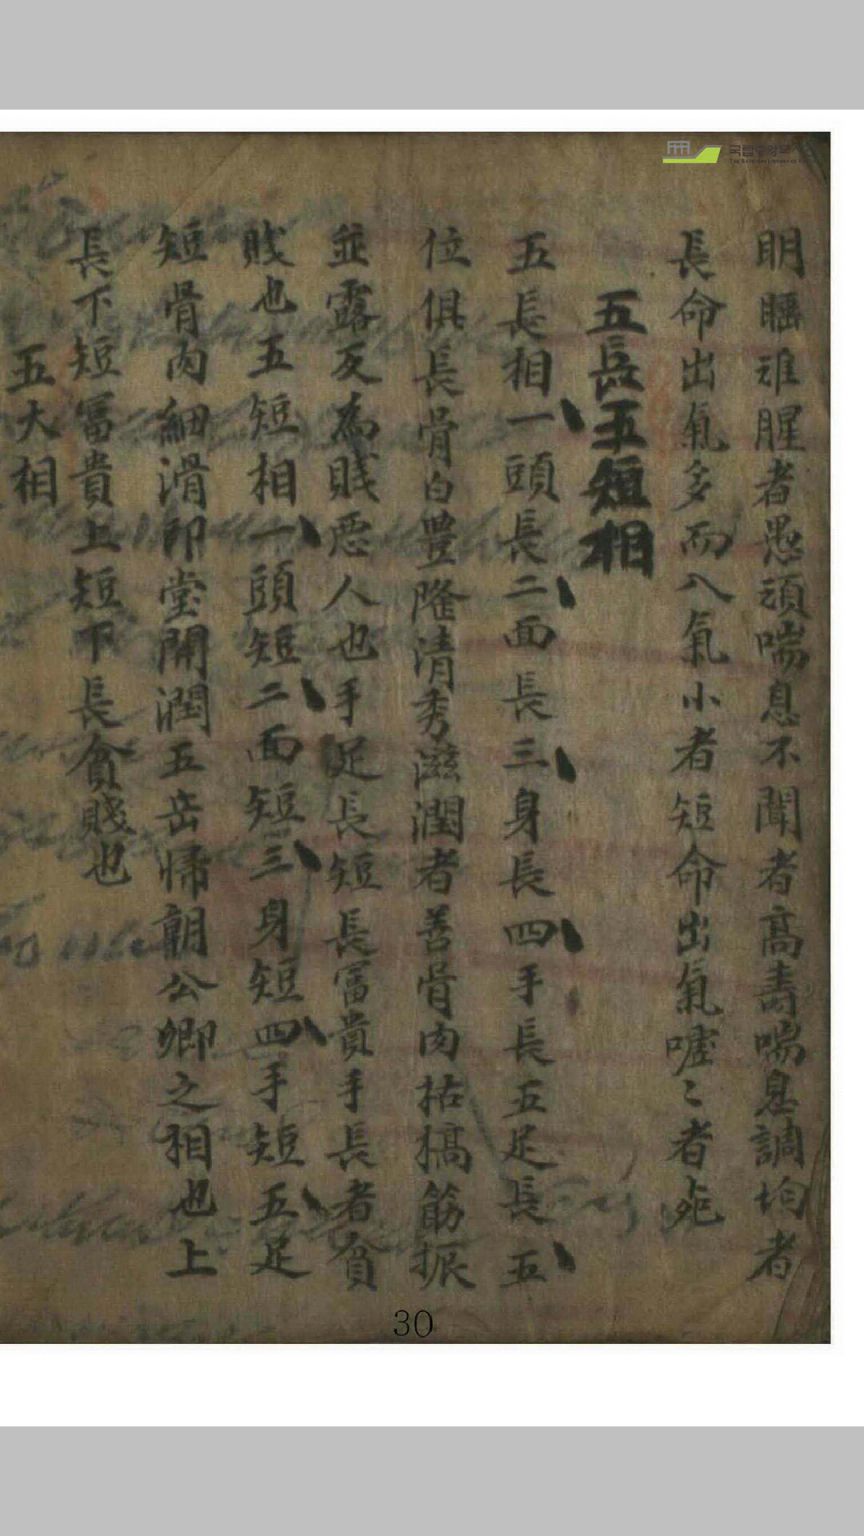 明睡難腥者愚頑喘息不聞者高壽喘息調均者
長命出氣多而入氣小者短命出氣嘘〻者死
五長五短相
五長相一頭長二面長三身長四手長五足長五
位俱長骨白豊隆清秀滋潤者善骨肉枯槁筋振
並露反為賎悪人也手足長短長冨貴手長者貧
賎也五短相一頭短二面短三身短四手短五足
短骨肉細滑印堂開潤五岳帰朝公卿之相也上
長下短冨貴上短下長貧賎也
五大相
30